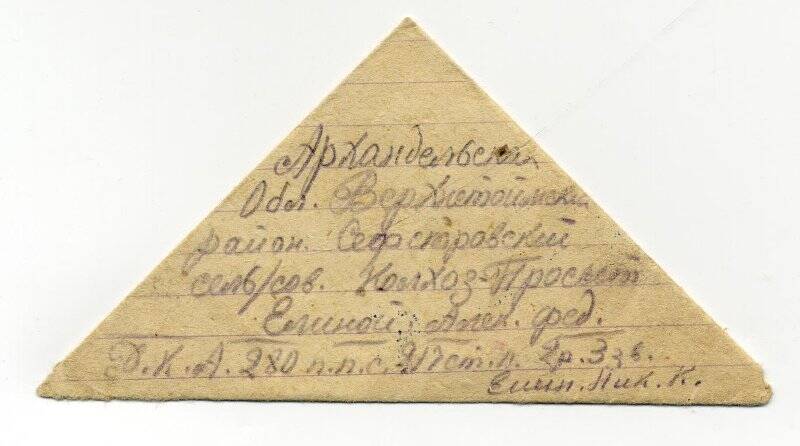 Архангельская
Обл. Верхнетоемский
район. Сефтровский
сель/сов. Колхоз-Просвет
Елиной Алек. фед.
Д.К.А. 280 п.п.с. 217 ст.п. 2р. 3 зв.
Елин. Ник. К.